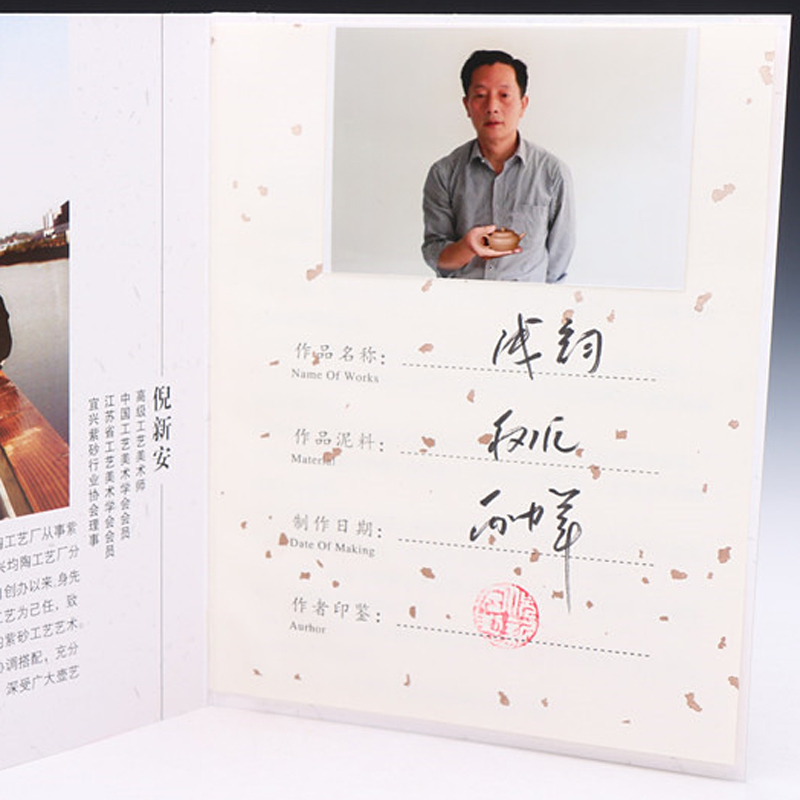 倪新安
高级工艺美术师
中国工艺美术学会会员
江苏省工艺美术学会会员
宜兴紫砂行业协会理事
陶工艺厂从事紫
兴均陶工艺厂分
自创办以来,身先
工艺为己任，致
的紫砂工艺艺术。
协调搭配，充分
深受广大壶艺
作品名称：
Name Of Works
作品泥料：
Material
制作日期：
Date Of Making
作者印鉴：
Aurhor